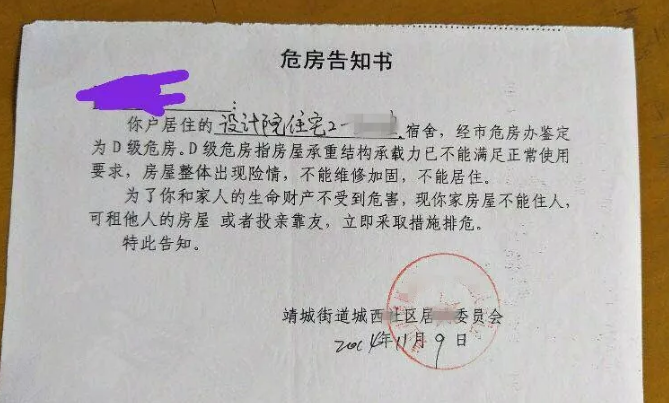 危房告知书
:
你户居住的设计院住宅2- 宿舍，经市危房办鉴定
为D级危房。D级危房指房屋承重结构承载力已不能满足正常使用
要求，房屋整体出现险情，不能维修加固，不能居住。
为了你和家人的生命财产不受到危害，现你家房屋不能住人，
可租他人的房屋 或者投亲靠友，立即采取措施排危。
特此告知。
靖城街道城西社区居 委员会
2014年11月9日